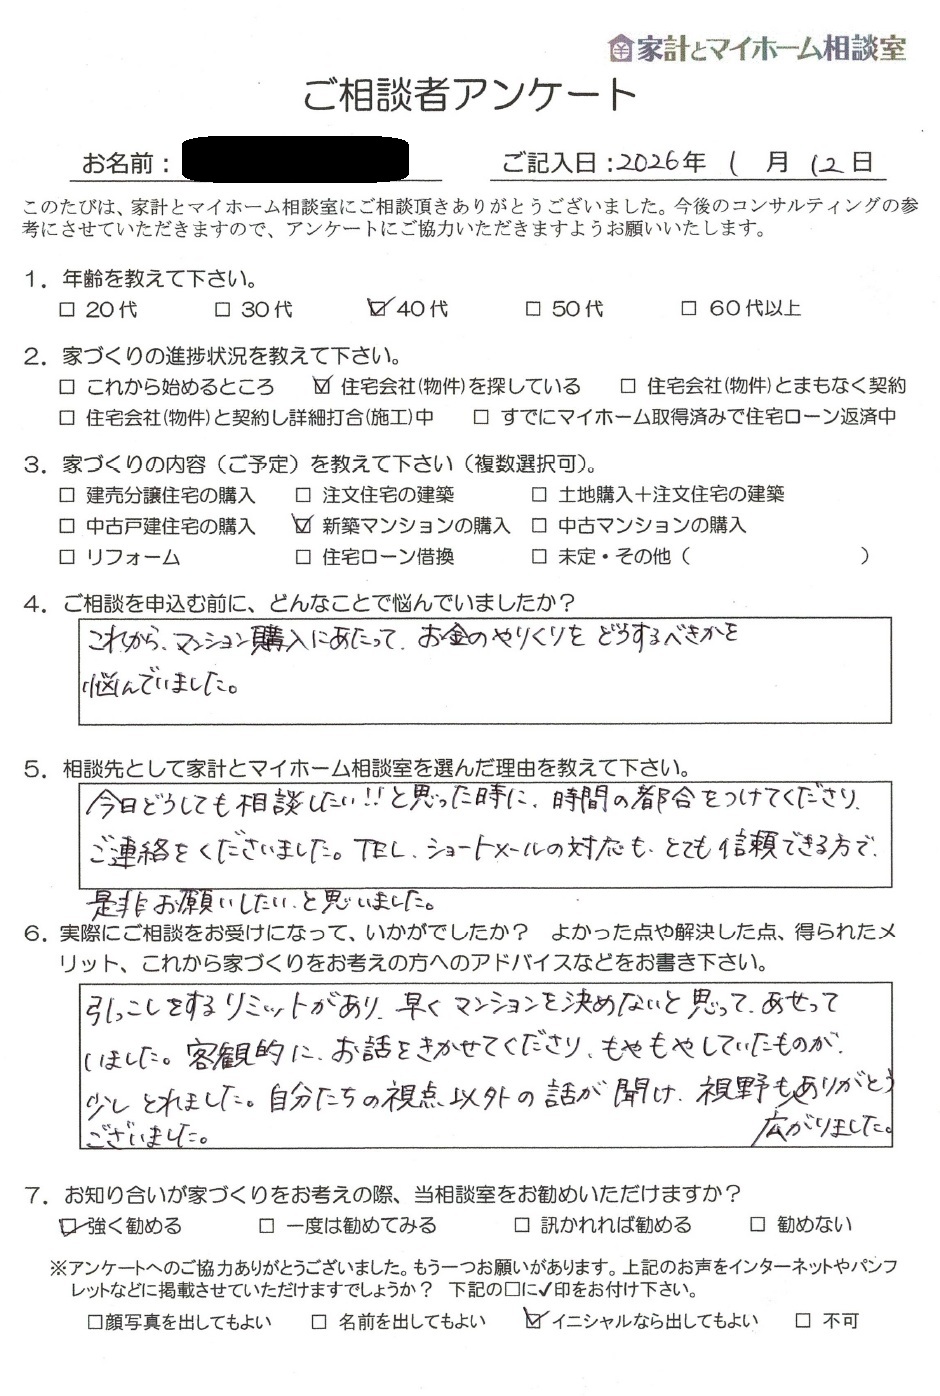 家計とマイホーム相談室
ご相談者アンケート
お名前：
ご記入日：2026年 1 月 12 日
このたびは、家計とマイホーム相談室にご相談頂きありがとうございました。今後のコンサルティングの参
考にさせていただきますので、アンケートにご協力いただきますようお願いいたします。
1．年齢を教えて下さい。
□ 20代 □ 30代 ☑ 40代 □ 50代 □ 60代以上
2．家づくりの進捗状況を教えて下さい。
□ これから始めるところ ☑ 住宅会社(物件)を探している □ 住宅会社(物件)とまもなく契約
□ 住宅会社(物件)と契約し詳細打合(施工)中 □ すでにマイホーム取得済みで住宅ローン返済中
3．家づくりの内容（ご予定）を教えて下さい（複数選択可)。
□ 建売分譲住宅の購入 □ 注文住宅の建築 □ 土地購入＋注文住宅の建築
□ 中古戸建住宅の購入 ☑ 新築マンションの購入 □ 中古マンションの購入
□ リフォーム □ 住宅ローン借換 □ 未定・その他（ ）
4．ご相談を申込む前に、どんなことで悩んでいましたか？
これから、マンション購入にあたって、お金のやりくりを どうするべきかを
悩んでいました。
5．相談先として家計とマイホーム相談室を選んだ理由を教えて下さい。
今日どうしても相談したい!!と思った時に、時間の都合をつけてくださり、
ご連絡をくださいました。TEL、ショートメールの対応も、とても信頼できる方で、
是非お願いしたい、と思いました。
6．実際にご相談をお受けになって、いかがでしたか？ よかった点や解決した点、得られたメ
リット、これから家づくりをお考えの方へのアドバイスなどをお書き下さい。
引っこしをするリミットがあり、早くマンションを決めないと思って、あせって
いました。客観的に、お話をきかせてくださり、もやもやしていたものが、
少しとれました。自分たちの視点以外の話が聞け、視野も広がりました。
ありがとうございました。
7．お知り合いが家づくりをお考えの際、当相談室をお勧めいただけますか？
☑ 強く勧める □ 一度は勧めてみる □ 訊かれれば勧める □ 勧めない
※アンケートへのご協力ありがとうございました。もう一つお願いがあります。上記のお声をインターネットやパンフ
レットなどに掲載させていただけますでしょうか？ 下記の□に✓印をお付け下さい。
□顔写真を出してもよい □ 名前を出してもよい ☑ イニシャルなら出してもよい □ 不可